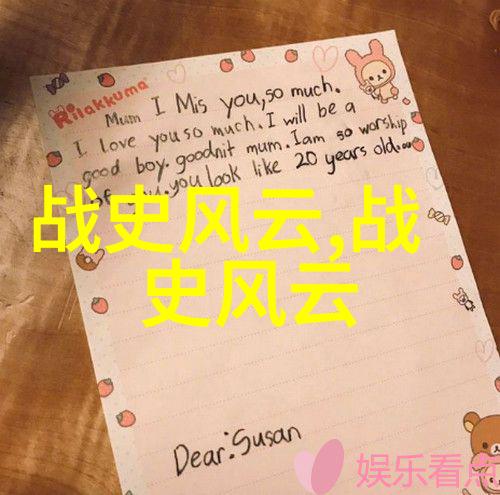 Rilakkuma
Mum I Mis you, so much.
I love you so much. I will be a
good boy. goodnit mum. I am so worship
of you. you look like 20 years old...
战史风云,战
史风云
Dear: Susan
娱乐看点